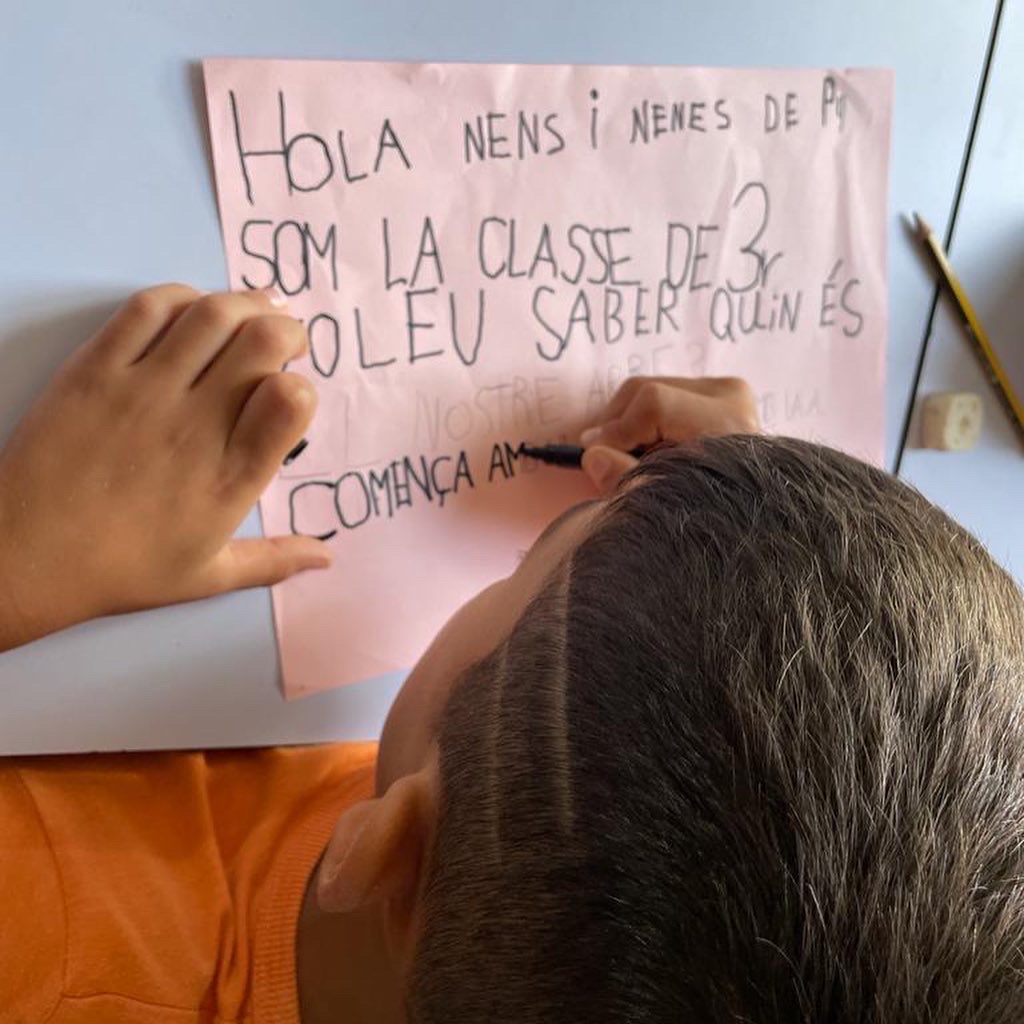 HOLA NENS i NENES DE
SOM LA CLASSE DE 3r
VOLEU SABER QUiN ÉS
NOSTRE ARBRE?
COMENÇA AM